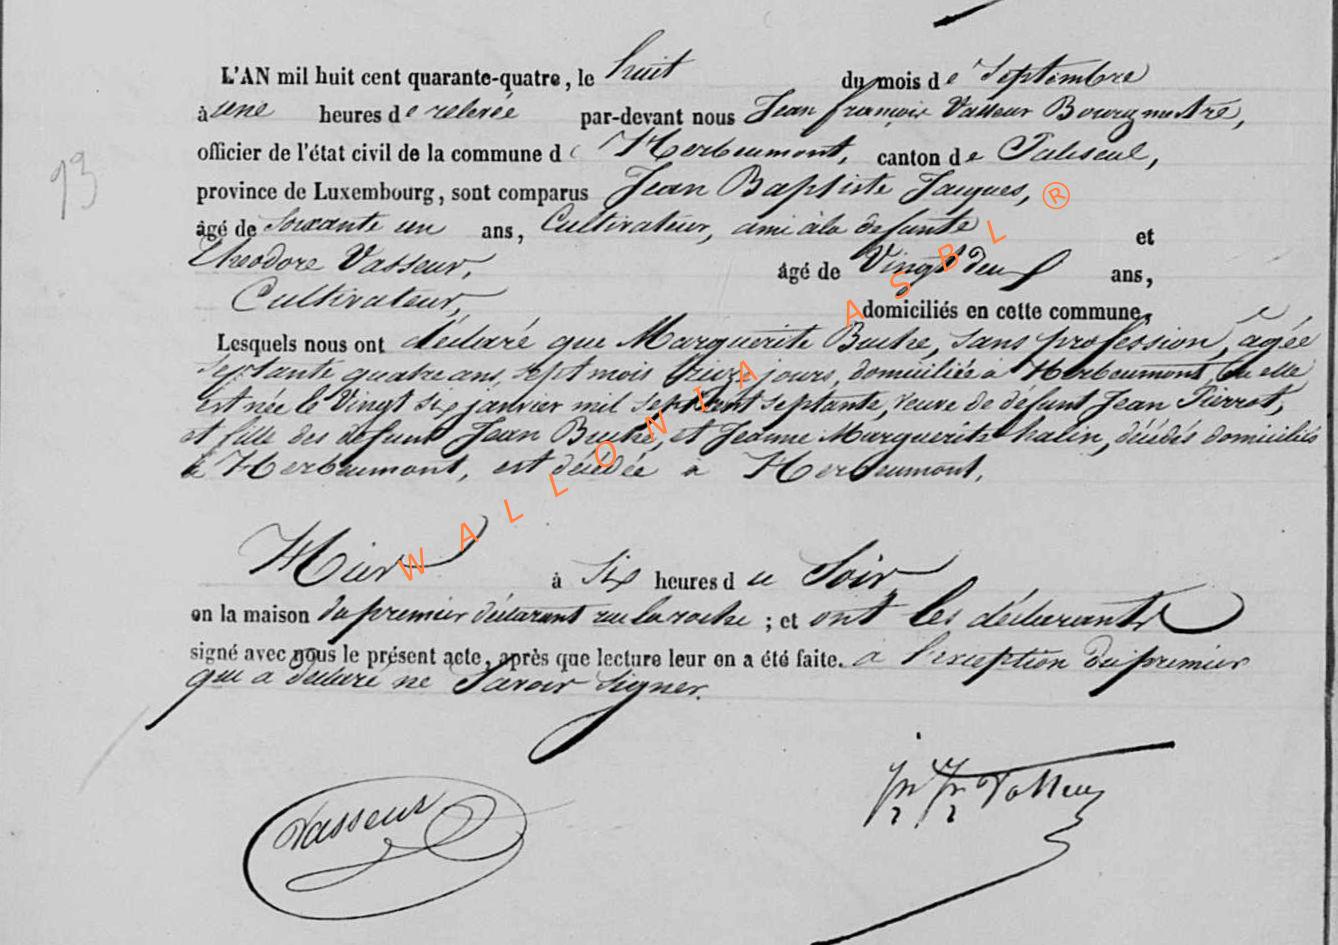 L'AN mil huit cent quarante-quatre, le huit du mois de Septembre
à une heures de relevée par-devant nous Jean françois Vasseur Bourgmestre,
officier de l'état civil de la commune d Herbeumont, canton de Paliseul,
93
province de Luxembourg, sont comparus Jean Baptiste Jacques,
âgé de Soixante un ans, Cultivateur, ami à la defunte et
Theodore Vasseur, âgé de Vingt deux ans,
Cultivateur, domiciliés en cette commune,
Lesquels nous ont déclaré que Marguerite Buche, sans profession, agée
septante quatre ans, sept mois treize jours, domiciliée à Herbeumont, ou elle
est née le Vingt six janvier mil sept cent septante, veuve de défunt Jean Pierrot,
et fille des défunt Jean Buche, et Jeanne Marguerite halin, décédés domiciliés
à Herbeumont, est décédée à Herbeumont,
Hier à six heures du Soir
en la maison du premier déclarant rue la roche ; et ont les déclarants
signé avec nous le présent acte, après que lecture leur en a été faite. a l'exception du premier
qui a déclaré ne Savoir Signer.
Vasseur
Jn Fr Vasseur
WALLONIA ASBL ®